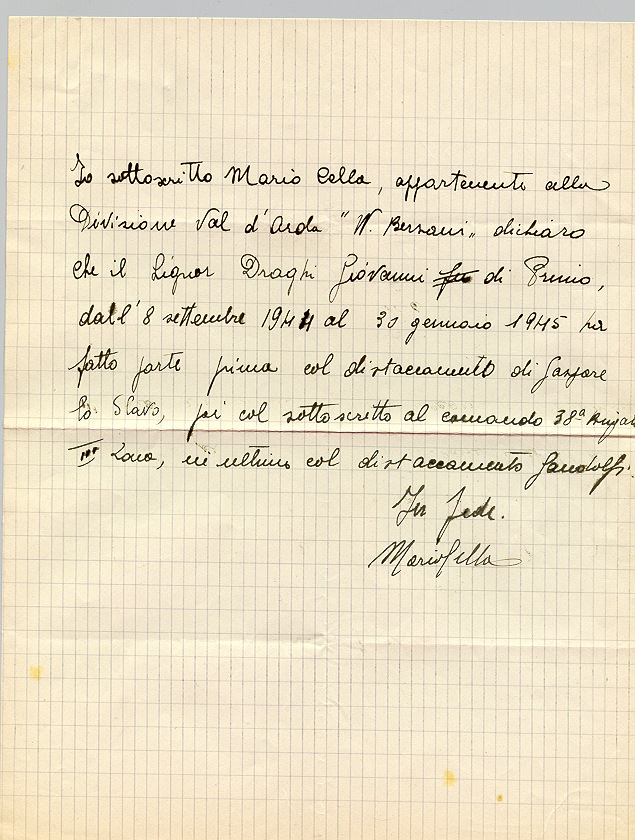 Io sottoscritto Mario Cella, appartenente alla
Divisione Val d'Arda "W. Bersani" dichiaro
che il Signor Draghi Giovanni fu di Primo,
dall'8 settembre 1944 al 30 gennaio 1945 ha
fatto parte prima col distaccamento di Gaspare
lo Slavo, poi col sottoscritto al comando 38ª Brigat
III Zona, in ultimo col distaccamento Gandolfi.
In fede.
Mario Cella